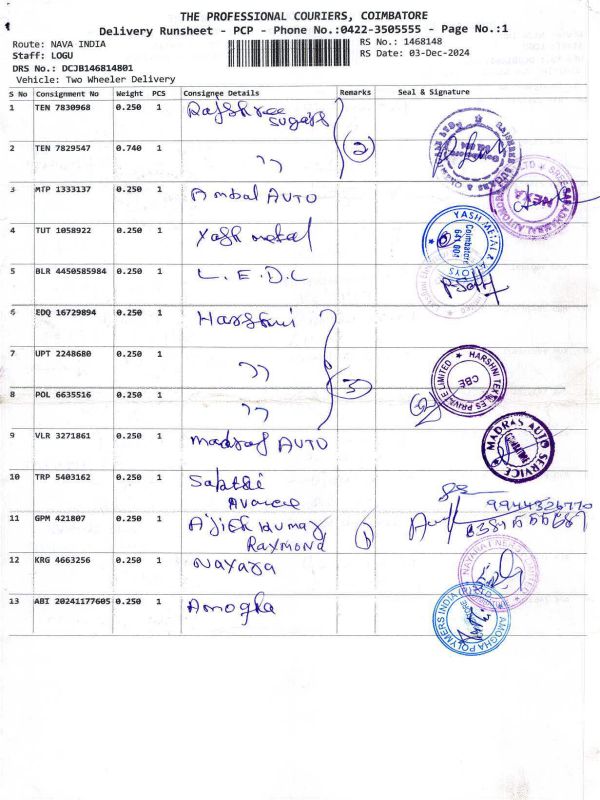 THE PROFESSIONAL COURIERS, COIMBATORE
Delivery Runsheet - PCP - Phone No.:0422-3505555 - Page No.:1
Route: NAVA INDIA
RS No.: 1468148
Staff: LOGU
RS Date: 03-Dec-2024
DRS No.: DCJB146814801
Vehicle: Two Wheeler Delivery
S No Consignment No Weight PCS Consignee Details Remarks Seal & Signature
1 TEN 7830968 0.250 1 Rajshree
Sugars
2 TEN 7829547 0.740 1 ,, 2
3 MTP 1333137 0.250 1 Ambal AUTO
4 TUT 1058922 0.250 1 Yash metal
YASH METAL & ALLOYS
Coimbatore
641 004
5 BLR 4450585984 0.250 1 L.E.D.L
6 EDQ 16729894 0.250 1 Harshni
7 UPT 2248680 0.250 1 ,,
3
HARSHNI TEXTILES PRIVATE LIMITED
CBE
8 POL 6635516 0.250 1 ,,
9 VLR 3271861 0.250 1 madras AUTO
MADRAS AUTO SERVICE
10 TRP 5403162 0.250 1 Sakthi
9944326770
11 GPM 421807 0.250 1 Ajith Kumar
RAYMOND
12 KRG 4663256 0.250 1 Nayara
13 ABT 20241177605 0.250 1 Amogha
AMOGHA POLYMERS INDIA (P) LTD